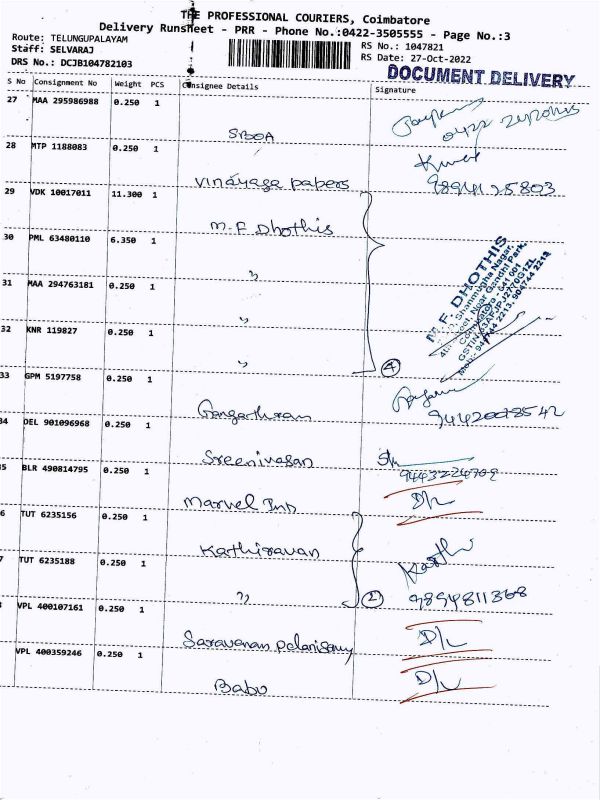 THE PROFESSIONAL COURIERS, Coimbatore
Delivery Runsheet - PRR - Phone No.:0422-3505555 - Page No.:3
Route: TELUNGUPALAYAM
Staff: SELVARAJ
DRS No.: DCJB104782103
RS No.: 1047821
RS Date: 27-Oct-2022
DOCUMENT DELIVERY
S No Consignment No Weight PCS Consignee Details Signature
27 MAA 295986988 0.250 1
SBOA
28 MTP 1188083 0.250 1
Vinayaga papers 9894125803
29 VDK 10017011 11.300 1
M.F Dhothis
30 PML 63480110 6.350 1
"
M.F. DHOTHIS
31 MAA 294763181 0.250 1
"
32 KNR 119827 0.250 1
" 4
33 GPM 5197758 0.250 1
Gangatharan
34 DEL 901096968 0.250 1
Sreenivasan
5 BLR 490814795 0.250 1
Marvel Ind D/L
6 TUT 6235156 0.250 1
Kathiravan Karthi
7 TUT 6235188 0.250 1
" 2 9894811368
VPL 400107161 0.250 1
Saravanan palanisamy D/L
VPL 400359246 0.250 1
Babu D/L